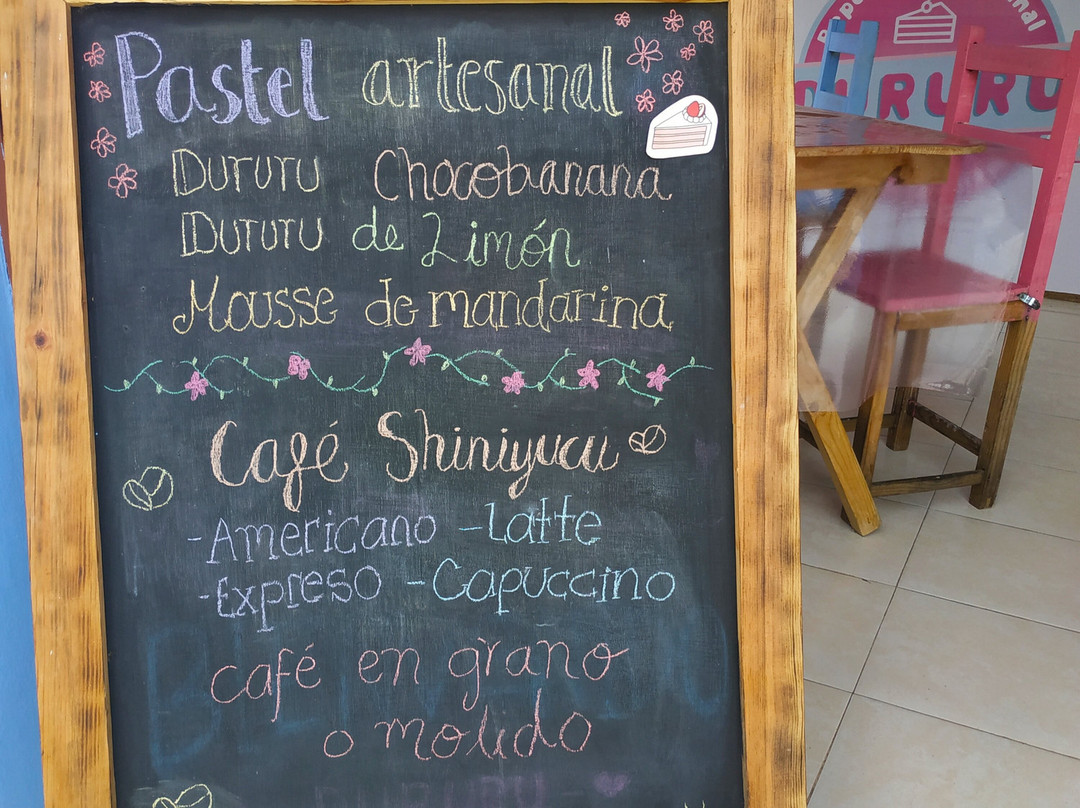 Pastel artesanal
Dururu Chocobanana
Dururu de Limón
Mousse de mandarina
Café Shiniyucu
-Americano -Latte
-Expreso -Capuccino
café en grano
o molido
DURURU